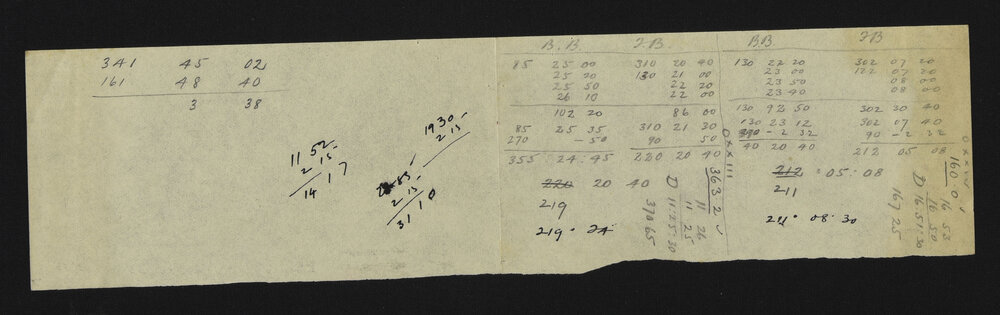 341 45 02
161 48 40
3 38
11 52
2 15
14 17
1930
2 15
2 15
31 10
B.B. F.B.
85 25 00 310 20 40
25 20 130 21 00
25 50 22 20
26 10 22 00
102 20 86 00
85 25 35 310 21 30
270 - 50 90 50
355 24 45 220 20 40
220 20 40
219
219 . 24
D 11.25.30
11 26
11 25
370 65
363 2
XXIII
B.B. F.B.
130 22 20 302 07 20
23 00 122 07 20
23 50 08 00
23 40 08 00
130 92 50 302 30 40
130 23 12 302 07 40
- 2 32 90 - 2 32
40 20 40 212 05 08
212 . 05 . 08
211
211 . 08 . 30
160 0
16 53
16 50
D 16.51.30
167 25